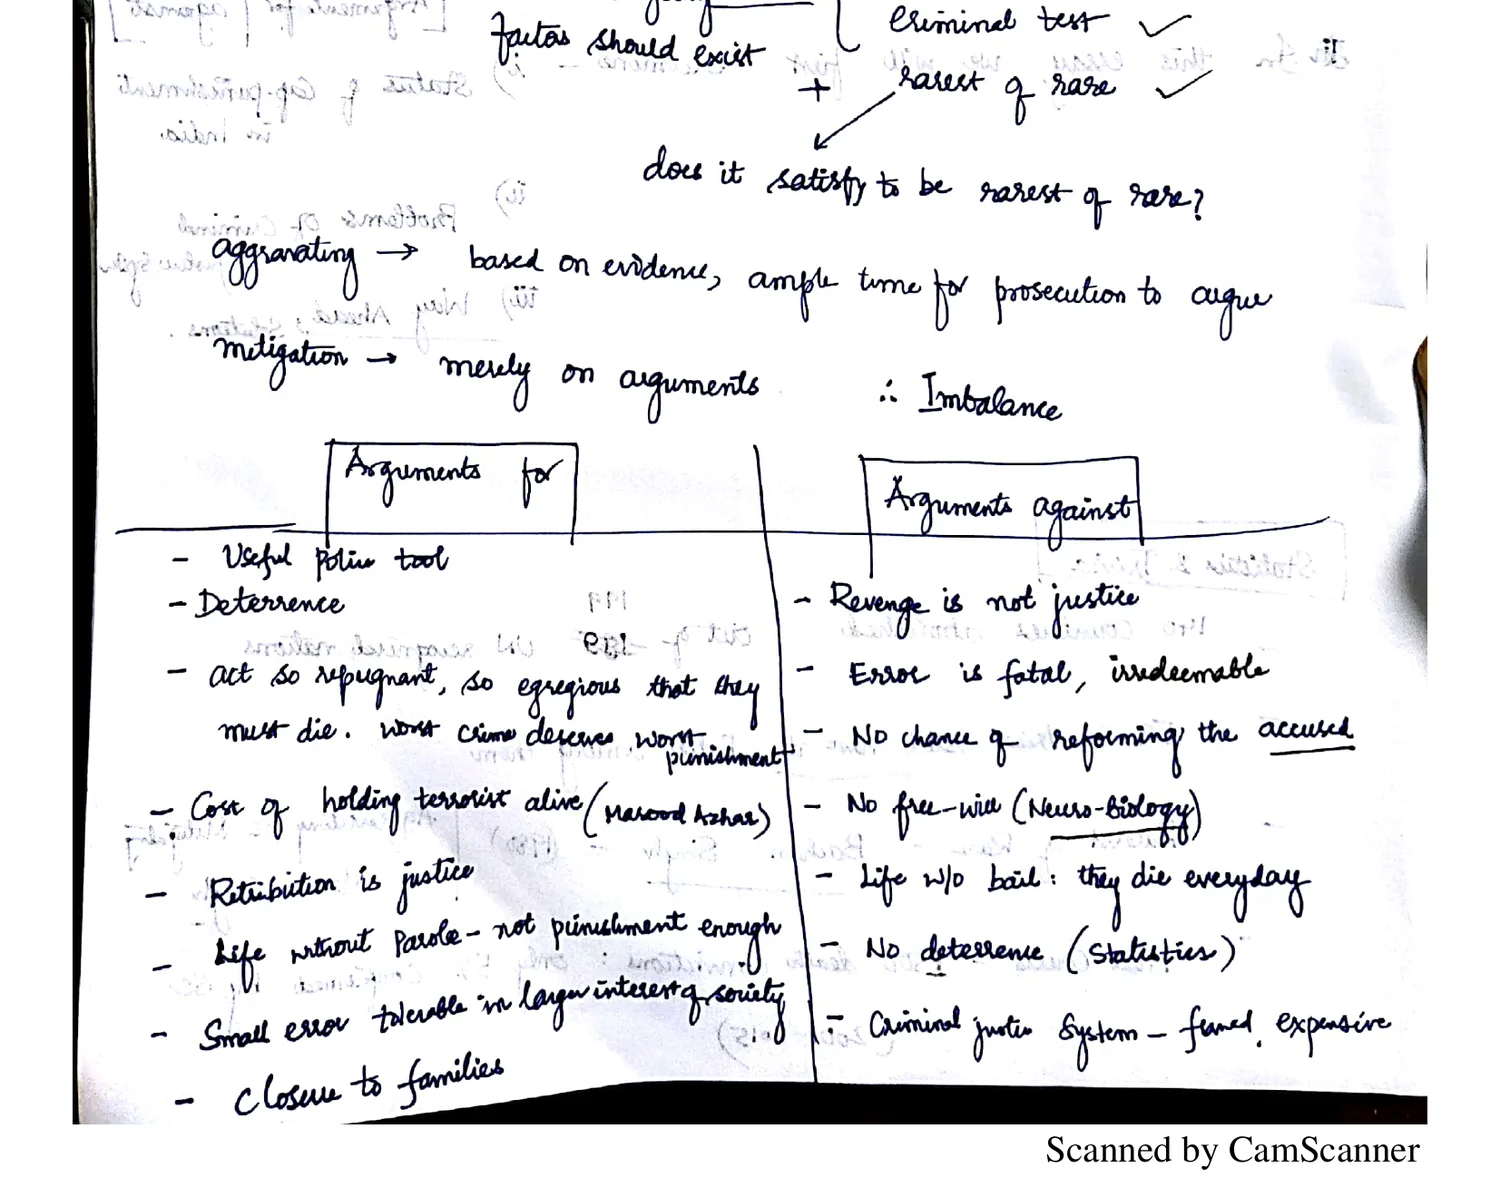 Criminal test ✓
factors should exist
+ rarest of rare ✓
does it satisfy to be rarest of rare?
aggravating → based on evidence, ample time for prosecution to argue
mitigation → merely on arguments ∴ Imbalance
Arguments for
Arguments against
- Useful Police tool
- Deterrence
- act so repugnant, so egregious that they
must die. worst crime deserves worst
punishment
- Cost of holding terrorist alive (Masood Azhar)
- Retribution is justice
- Life without Parole - not punishment enough
- Small error tolerable in larger interest of society
- closure to families
- Revenge is not justice
- Error is fatal, irredeemable
- No chance of reforming the accused
- No free-will (Neuro-Biology)
- Life w/o bail: they die everyday
- No deterrence (Statistics)
- Criminal justice System - flawed, expensive
Scanned by CamScanner